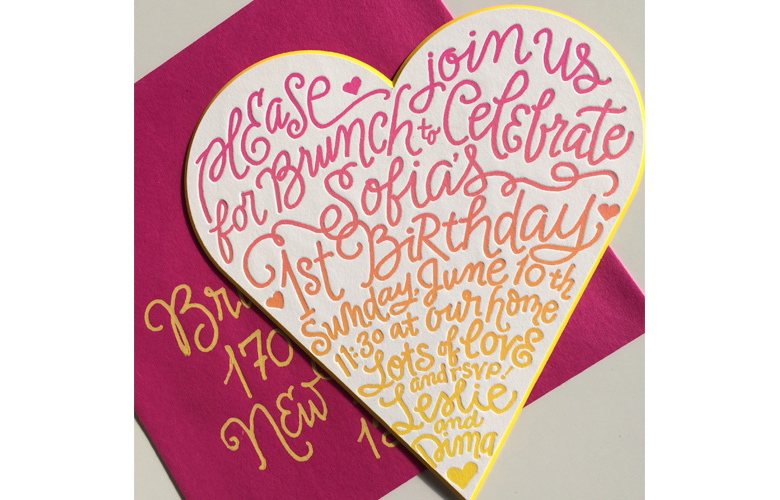 please join us
for Brunch to Celebrate
Sofia's
1st Birthday
Sunday, June 10th
11:30 at our home
Lots of love
and rsvp!
Leslie
and
Dima
170
New